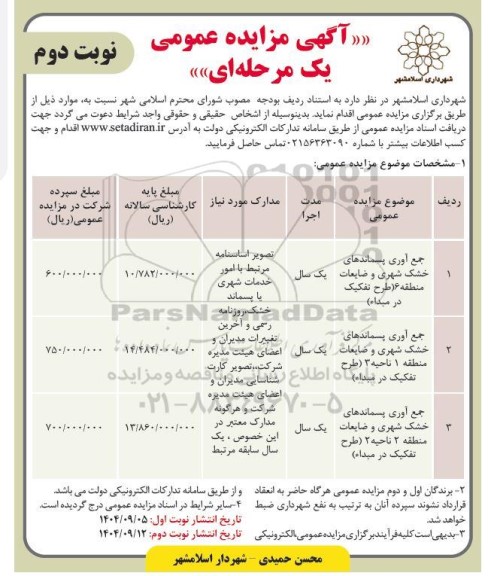 ««آگهی مزایده عمومی
یک مرحله‌ای»»
نوبت دوم
شهرداری اسلامشهر
شهرداری اسلامشهر در نظر دارد به استناد ردیف بودجه مصوب شورای محترم اسلامی شهر نسبت به، موارد ذیل از
طریق برگزاری مزایده عمومی اقدام نماید. بدینوسیله از اشخاص حقیقی و حقوقی واجد شرایط دعوت می گردد جهت
دریافت اسناد مزایده عمومی از طریق سامانه تدارکات الکترونیکی دولت به آدرس www.setadiran.ir اقدام و جهت
کسب اطلاعات بیشتر با شماره ۰۲۱۵۶۳۶۳۰۹۰ تماس حاصل فرمایید.
۱-مشخصات موضوع مزایده عمومی:
ردیف
موضوع مزایده
عمومی
مدت
اجرا
مدارک مورد نیاز
مبلغ پایه
کارشناسی سالانه
(ریال)
مبلغ سپرده
شرکت در مزایده
عمومی(ریال)
۱
جمع آوری پسماندهای
خشک شهری و ضایعات
منطقه۶(طرح تفکیک
در مبداء)
یک سال
۱۰/۷۸۲/۰۰۰/۰۰۰
۶۰۰/۰۰۰/۰۰۰
۲
جمع آوری پسماندهای
خشک شهری و ضایعات
منطقه ۱ ناحیه۳ (طرح
تفکیک در مبداء)
یک سال
۱۴/۴۸۴/۰۰۰/۰۰۰
۷۵۰/۰۰۰/۰۰۰
۳
جمع آوری پسماندهای
خشک شهری و ضایعات
منطقه ۲ ناحیه۲ (طرح
تفکیک در مبداء)
یک سال
۱۳/۸۶۰/۰۰۰/۰۰۰
۷۰۰/۰۰۰/۰۰۰
تصویر اساسنامه
مرتبط با امور
خدمات شهری
یا پسماند
خشک،روزنامه
رسمی و آخرین
تغییرات مدیران و
اعضای هیئت مدیره
شرکت،تصویر کارت
شناسایی مدیران و
اعضای هیئت مدیره
شرکت و هرگونه
مدارک معتبر در
این خصوص ، یک
سال سابقه مرتبط
ParsNamadData
۰۲۱-۸۸۳۴۹۶۷۰-۵
۲- برندگان اول و دوم مزایده عمومی هرگاه حاضر به انعقاد
قرارداد نشوند سپرده آنان به ترتیب به نفع شهرداری ضبط
خواهد شد.
۳-بدیهی‌است‌کلیه‌فرآیندبرگزاری‌مزایده‌عمومی،الکترونیکی
و از طریق سامانه تدارکات الکترونیکی دولت می باشد.
۴-سایر شرایط در اسناد مزایده عمومی درج گردیده است.
تاریخ انتشار نوبت اول: ۱۴۰۴/۰۹/۰۵
تاریخ انتشار نوبت دوم: ۱۴۰۴/۰۹/۱۲
محسن حمیدی – شهردار اسلامشهر